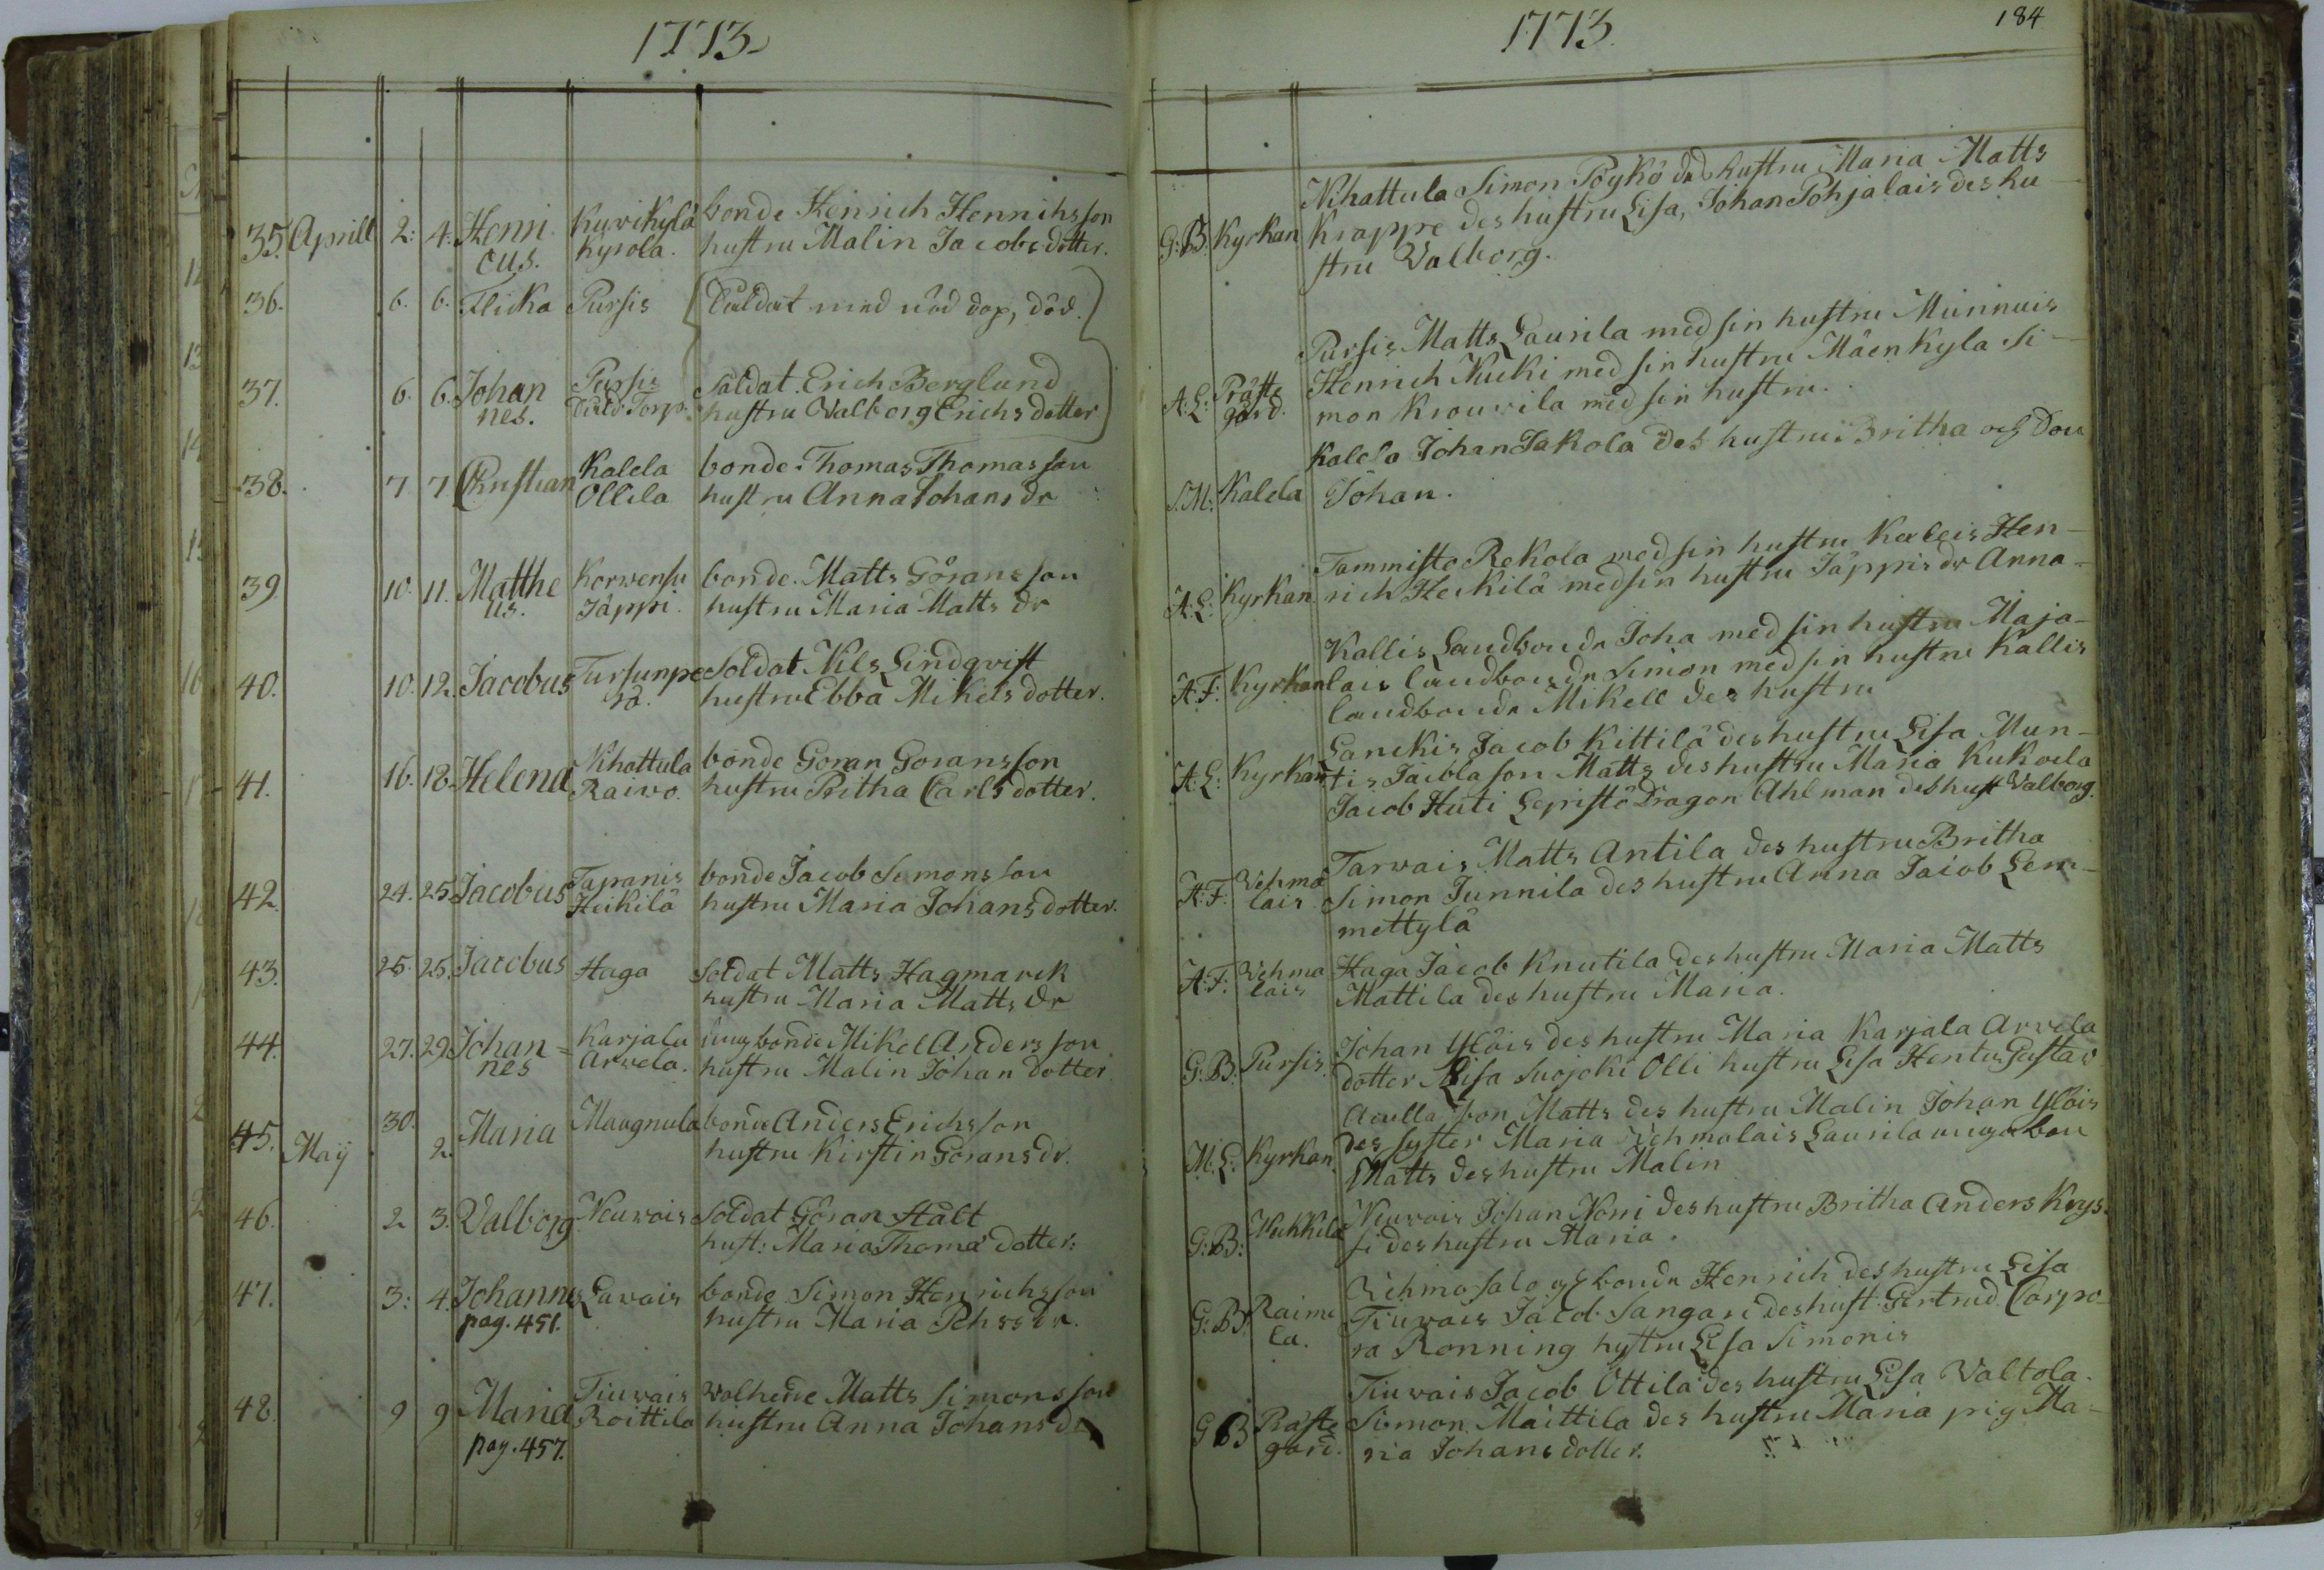 1773
35. Aprill 2: 4. Henri cus. Kuwikylä Kyrola. bonde Henrich Henrichsson
hustru Malin Jacobs dotter.
36. 6. 6. Flicka Pursis Såldat med nöd dop, död.
37. 6. 6. Johan nes. Pursis Såld: Torp. Såldat. Erich Berglund
hustru Valborg Erichs dotter
38. 7 7 Christian Kalela Ollila bonde Thomas Thomasson
hustru Anna Johans dr
39. 10. 11. Matthe us. Korwensu Jäppi. bonde Matts Göransson
hustru Maria Matts dr
40. 10. 12. Jacobus Tursunpe rä. Soldat Nils Lindqvist
hustru Ebba Mikels dotter.
41. 16. 18. Helena Nihattula Raiwo. bonde Göran Goransson
hustru Britha Carls dotter.
42. 24. 25. Jacobus Tapanis Heikilä bonde Jacob Simonsson
hustru Maria Johans dotter.
43. 25. 25. Jacobus Haga Soldat Matts Hagmarck
hustru Maria Matts dr
44. 27. 29. Johan= nes Karjala Arvela. ung bonde Mikel Andersson
hustru Malin Johan dotter
45. Maÿ 30. 2. Maria Maugnula bonde Anders Erichsson
hustru Kirstin Görans dr.
46. 2 3. Valborg Neuvois Soldat Göran Stält
hust: Maria Thoma dotter:
47. 3: 4. Johannes Lavois bonde Simon Henrichsson
pag. 451. hustru Maria Pehrs dr.
48. 9 9 Maria Tiuvais Roittila Walhede Matts Simonsson
hustru Anna Johans dr
pag. 457.
1773.
184
Nihattula Simon Pöykö dr hustru Maria Matts
G:B. Kyrkan Krappe des hustru Lisa, Johan Pohjalais des hu
stru Valborg.
Pursis Matts Laurila med sin hustru Muinnuis
A:L: Präste gård. Henrich Kucki med sin hustru Mäenkyla Si-
mon Krouvila med sin hustru.
Kalela Johan Jakola des hustru Britha och Dou
S.M: Kalela Johan.
Tammisto Rekola med sin hustru Kaleis Hen-
A:L: Kyrkan rich Heikilä med sin hustru Jäppis dr Anna-
Kallis Landbonde Joha med sin hustru Maja-
A:F: Kyrkan lais landbonde Simon med sin hustru Kallis
landbonde Mikell des hustru
Lanckis Jacob Kittilä des hustru Lisa Mun-
A:L: Kyrkan tis Jacola son Matts des hustru Maria Kukola
Jacob Huti Lepistö Dragon Ahlman des hust Valborg.
Tarvais Matts Antila des hustru Britha
A:F: Vehma lais Simon Junnila des hustru Anna Jacob Lem-
mettylä
A:F: Vehma lais Haga Jacob Knutila des hustru Maria Matts
Mattila des hustru Maria.
G:B: Pursis. Johan Ylöis des hustru Maria Karjala Arvela
dotter Lisa Suojoki Olli hustru Lisa Hentus Gustav
Aculla son Matts des hustru Malin Johan Ylöis
M:L: Kyrkan. Des syster Maria Vehmalais Laurila unga bon
Matts des hustru Malin
G:B: Neuvois Johan Noni des hustru Britha Anders Krys-
si des hustru Maria.
Vehmasalo bonde Henrich des hustru Lisa
G:B: Raime la. Tiuvais Jacob Sangari des hust. Gertrud Corpo-
ra Ronning hustru Lisa Simonis
Tiuvais Jacob Ottila des hustru Lisa Valtola.
G B Präste gård. Simon Maittila des hustru Maria pig Ma-
ria Johans dotter.